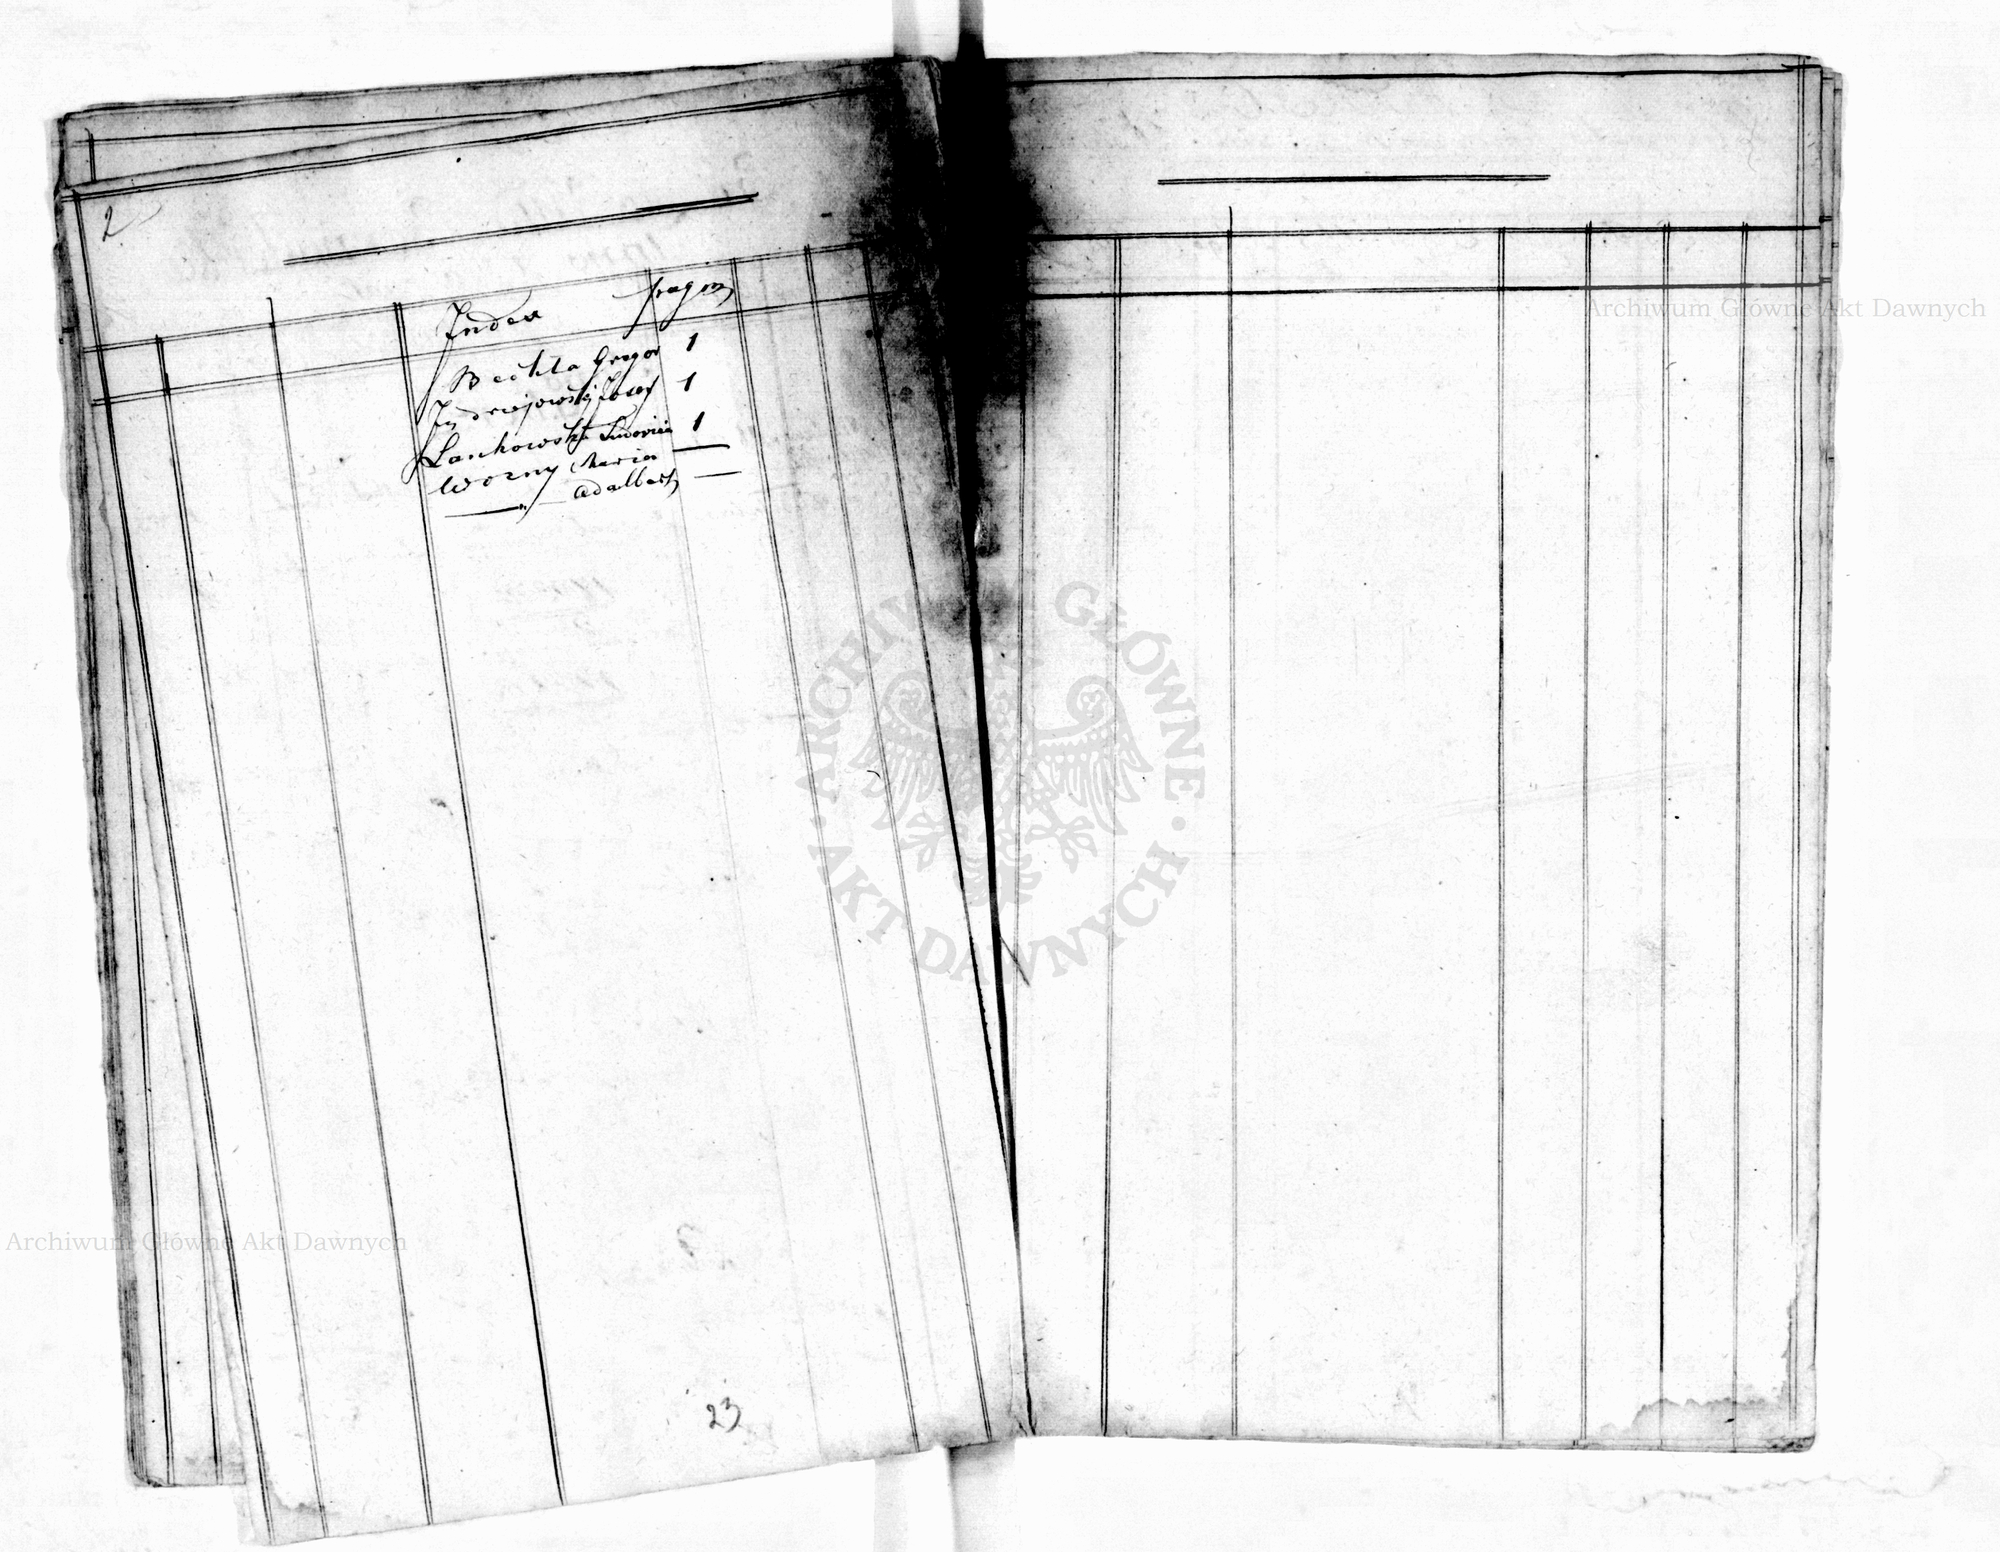 2
Index pagin
Bechta Gregor 1
Jędrzejowski Josef 1
Lankowska Ludovica 1
Worny Maria —
— " — Adalbert —
23
Archiwum Główne Akt Dawnych
ARCHIWUM GŁÓWNE · AKT DAWNYCH ·
Archiwum Główne Akt Dawnych